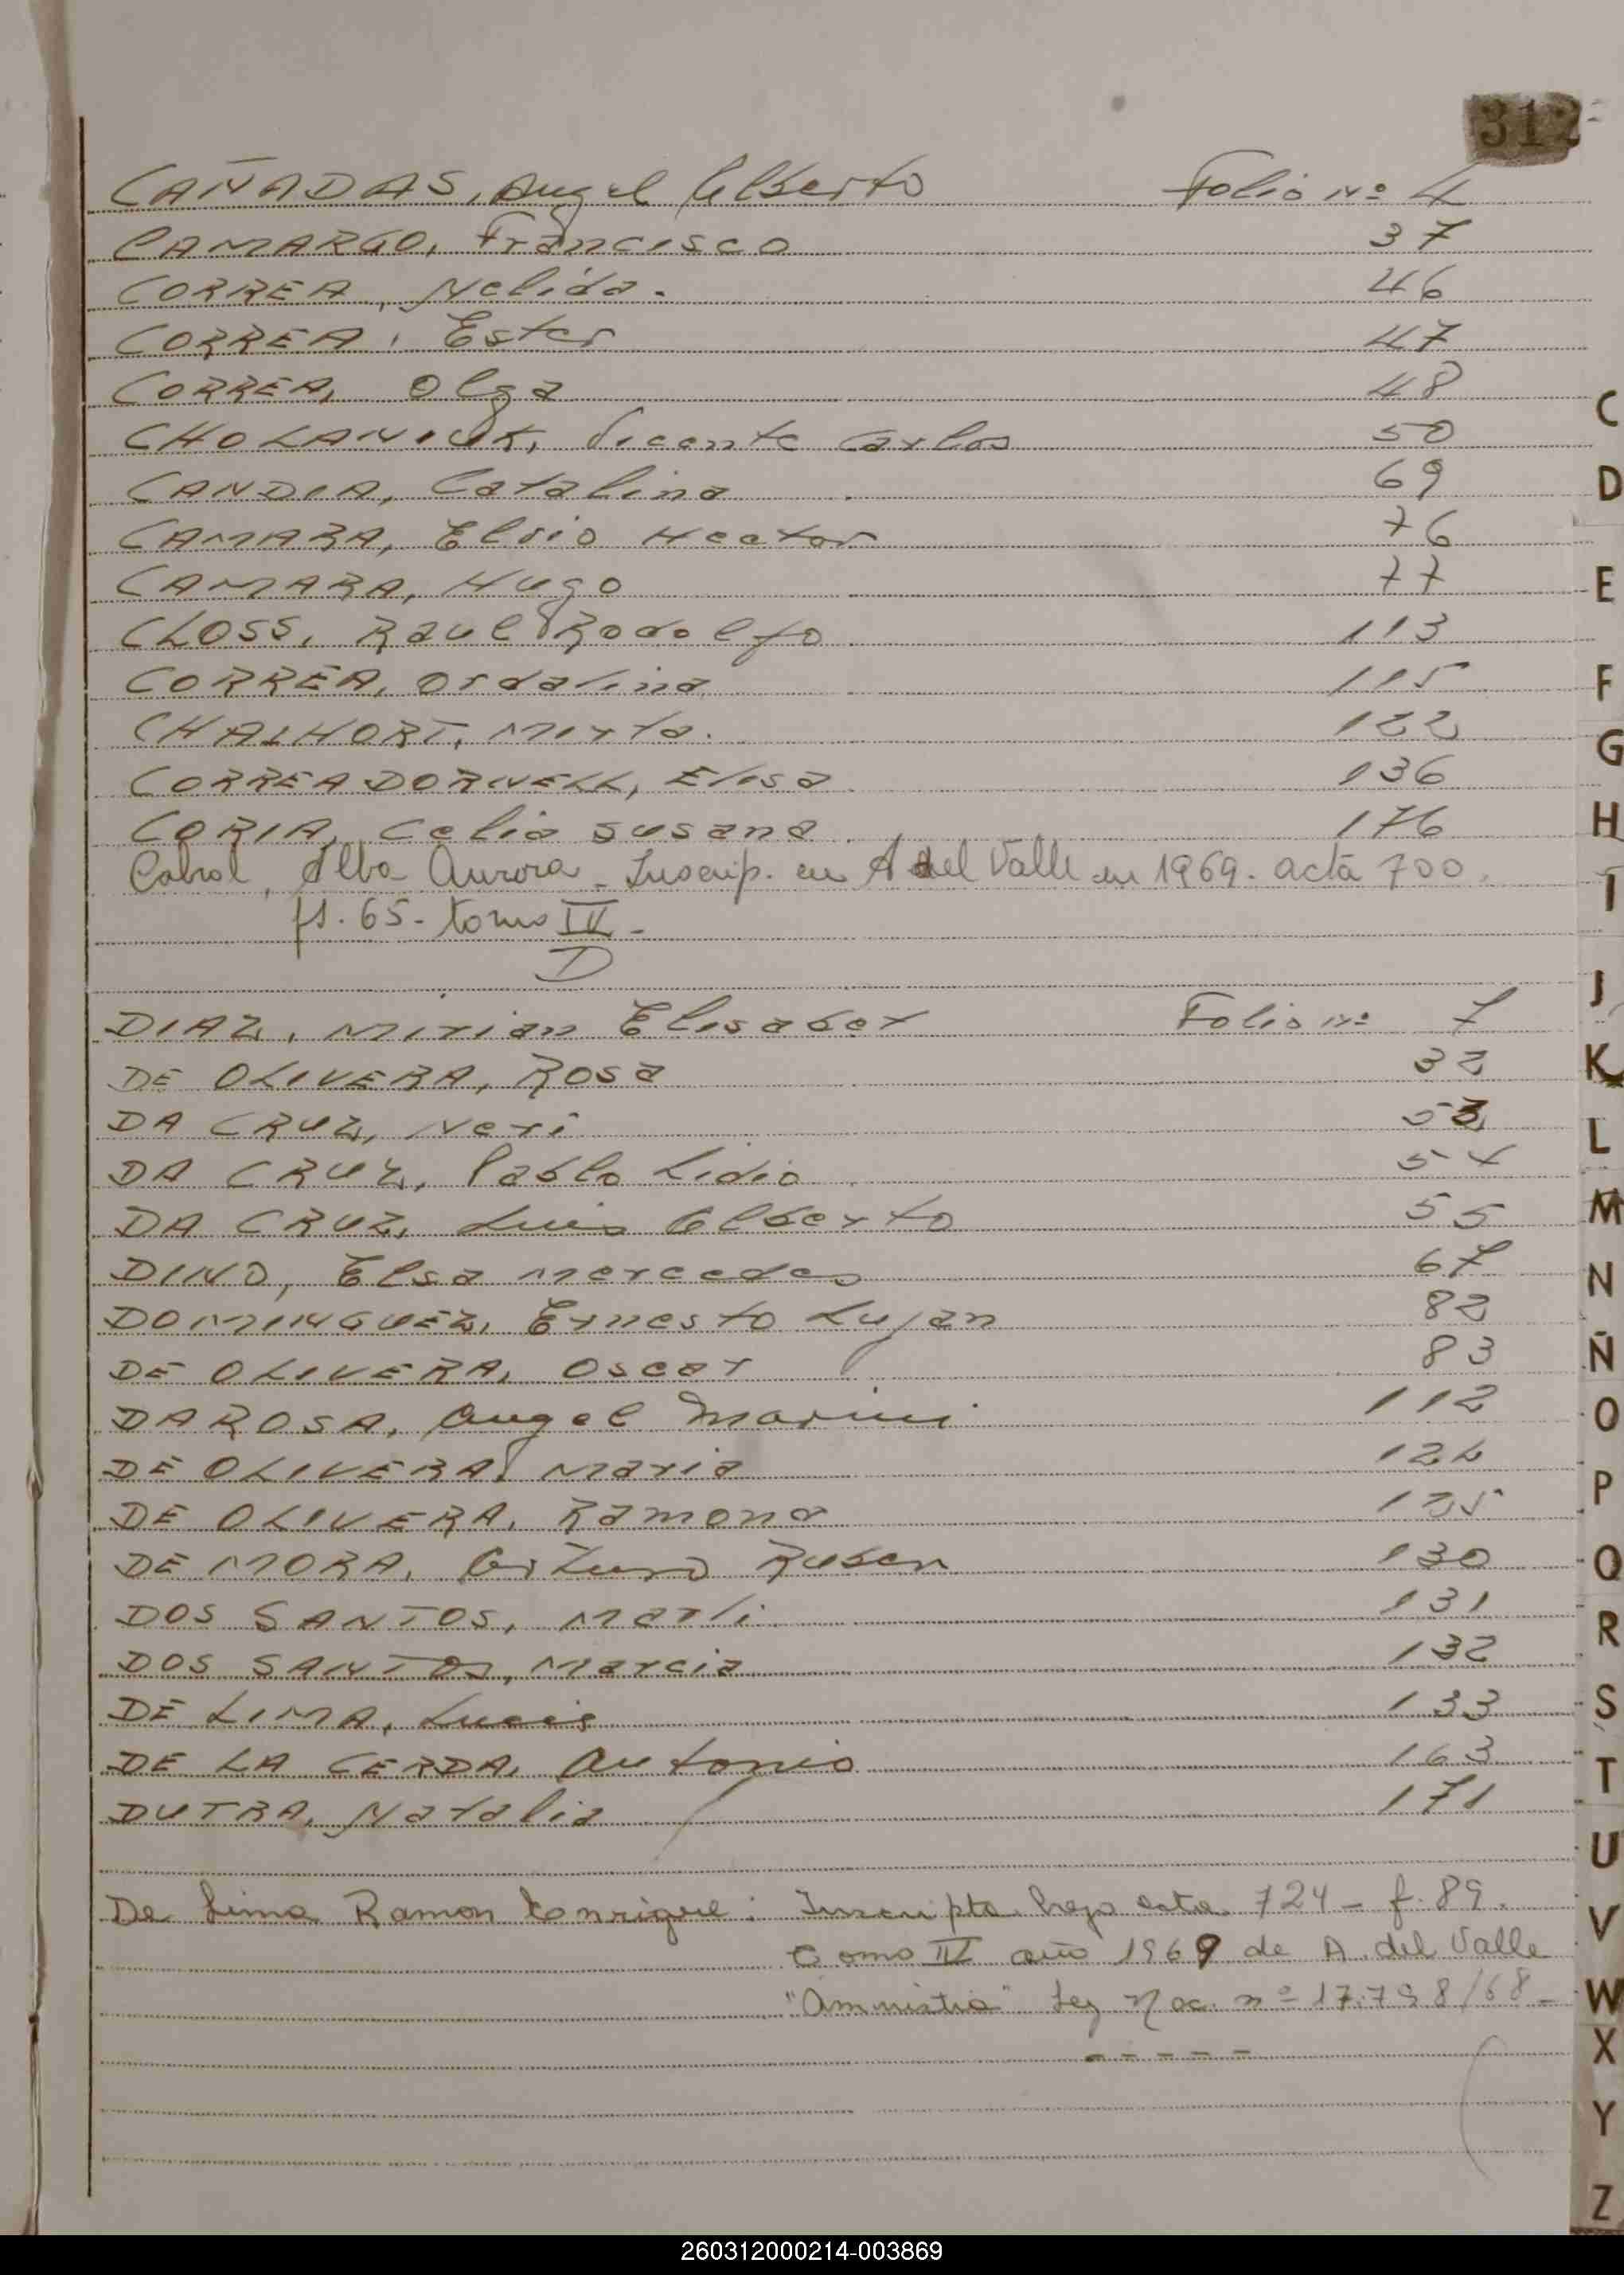 312
CAÑADAS, Angel Alberto Folio Nº 4
CAMARGO, Francisco 37
CORREA, Nelida. 46
CORREA, Ester 47
CORREA, Olga 48
CHOLANIUK, Vicente Carlos 50
CANDIA, Catalina 69
CAMARA, Elsio Hector 76
CAMARA, Hugo 77
CLOSS, Raul Rodolfo 113
CORREA, Ordalina 115
Mirta. 122
CORREA DORNELL, Elisa 136
CORIA, Celia Susana 176
Cabral, Alba Aurora - Inscrip. en A del Valle en 1969. acta 700.
fs. 65 - tomo IV -
D
DIAZ, Mirian Elisabet Folio Nº 7
DE OLIVERA, Rosa 32
DA CRUZ, Neri 53
DA CRUZ, Pablo Lidio 54
DA CRUZ, Luis Alberto 55
DINO, Elsa Mercedes 67
DOMINGUEZ, Ernesto Lujan 82
DE OLIVERA, Oscar 83
DA ROSA, Angel Marini 112
DE OLIVERA, Maria 124
DE OLIVERA, Ramona 125
DE MORA, Arturo Ruben 130
DOS SANTOS, Marli 131
DOS SANTOS, Marcia 132
DE LIMA, Lucis 133
DE LA CERDA, Antonio 163
DUTRA, Natalia 171
De Lima Ramon Enrique: Inscripta bajo acta 724 - f. 89.
Tomo IV año 1969 de A. del Valle
"Amnistia" Ley Nac. nº 17.798/68 -
- - - - -
C
D
E
F
G
H
I
J
K
L
M
N
Ñ
O
P
Q
R
S
T
U
V
W
X
Y
Z
260312000214-003869